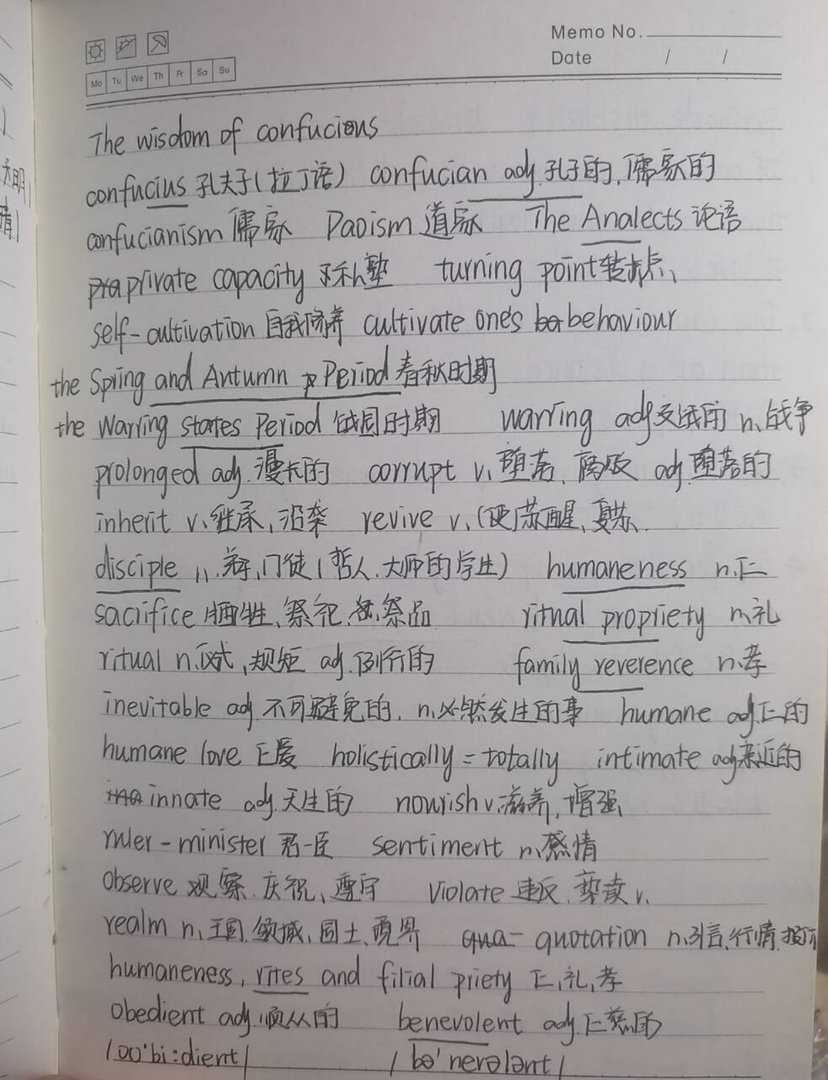 Memo No.
Date / /
Mo Tu We Th Fr Sa Su
The wisdom of confucious
confucius 孔夫子(拉丁语) confucian adj.孔子的,儒家的
confucianism 儒家 Daoism 道家 The Analects 论语
private capacity 私塾 turning point 转折点、
self-cultivation 自我修养 cultivate one's behaviour
the Spring and Autumn Period 春秋时期
the Warring States Period 战国时期 warring adj交战的 n、战争
prolonged adj.漫长的 corrupt v、堕落、腐败 adj.堕落的
inherit v、继承,沿袭 revive v、(使)苏醒、复苏、
disciple n、弟子,门徒(哲人.大师的学生) humaneness n.仁
sacrifice 牺牲、祭祀、祭品 ritual propriety n、礼
ritual n.仪式,规矩 adj.例行的 family reverence n.孝
inevitable adj.不可避免的. n、必然发生的事 humane adj.仁的
humane love 仁爱 holistically = totally intimate adj亲近的
innate adj.天生的 nourish v.滋养,增强
ruler-minister 君-臣 sentiment n、感情
observe 观察.庆祝、遵守 violate 违反.亵渎 v.
realm n、王国、领域、国土、境界 quotation n、引言、行情
humaneness, rites and filial priety 仁、礼、孝
obedient adj.顺从的 benevolent adj.仁慈的
/əʊ'bi:dient/ /bə'nevələnt/